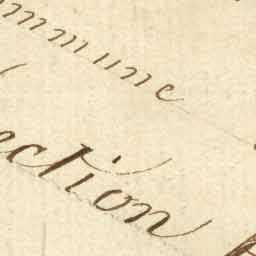 ommune
ection